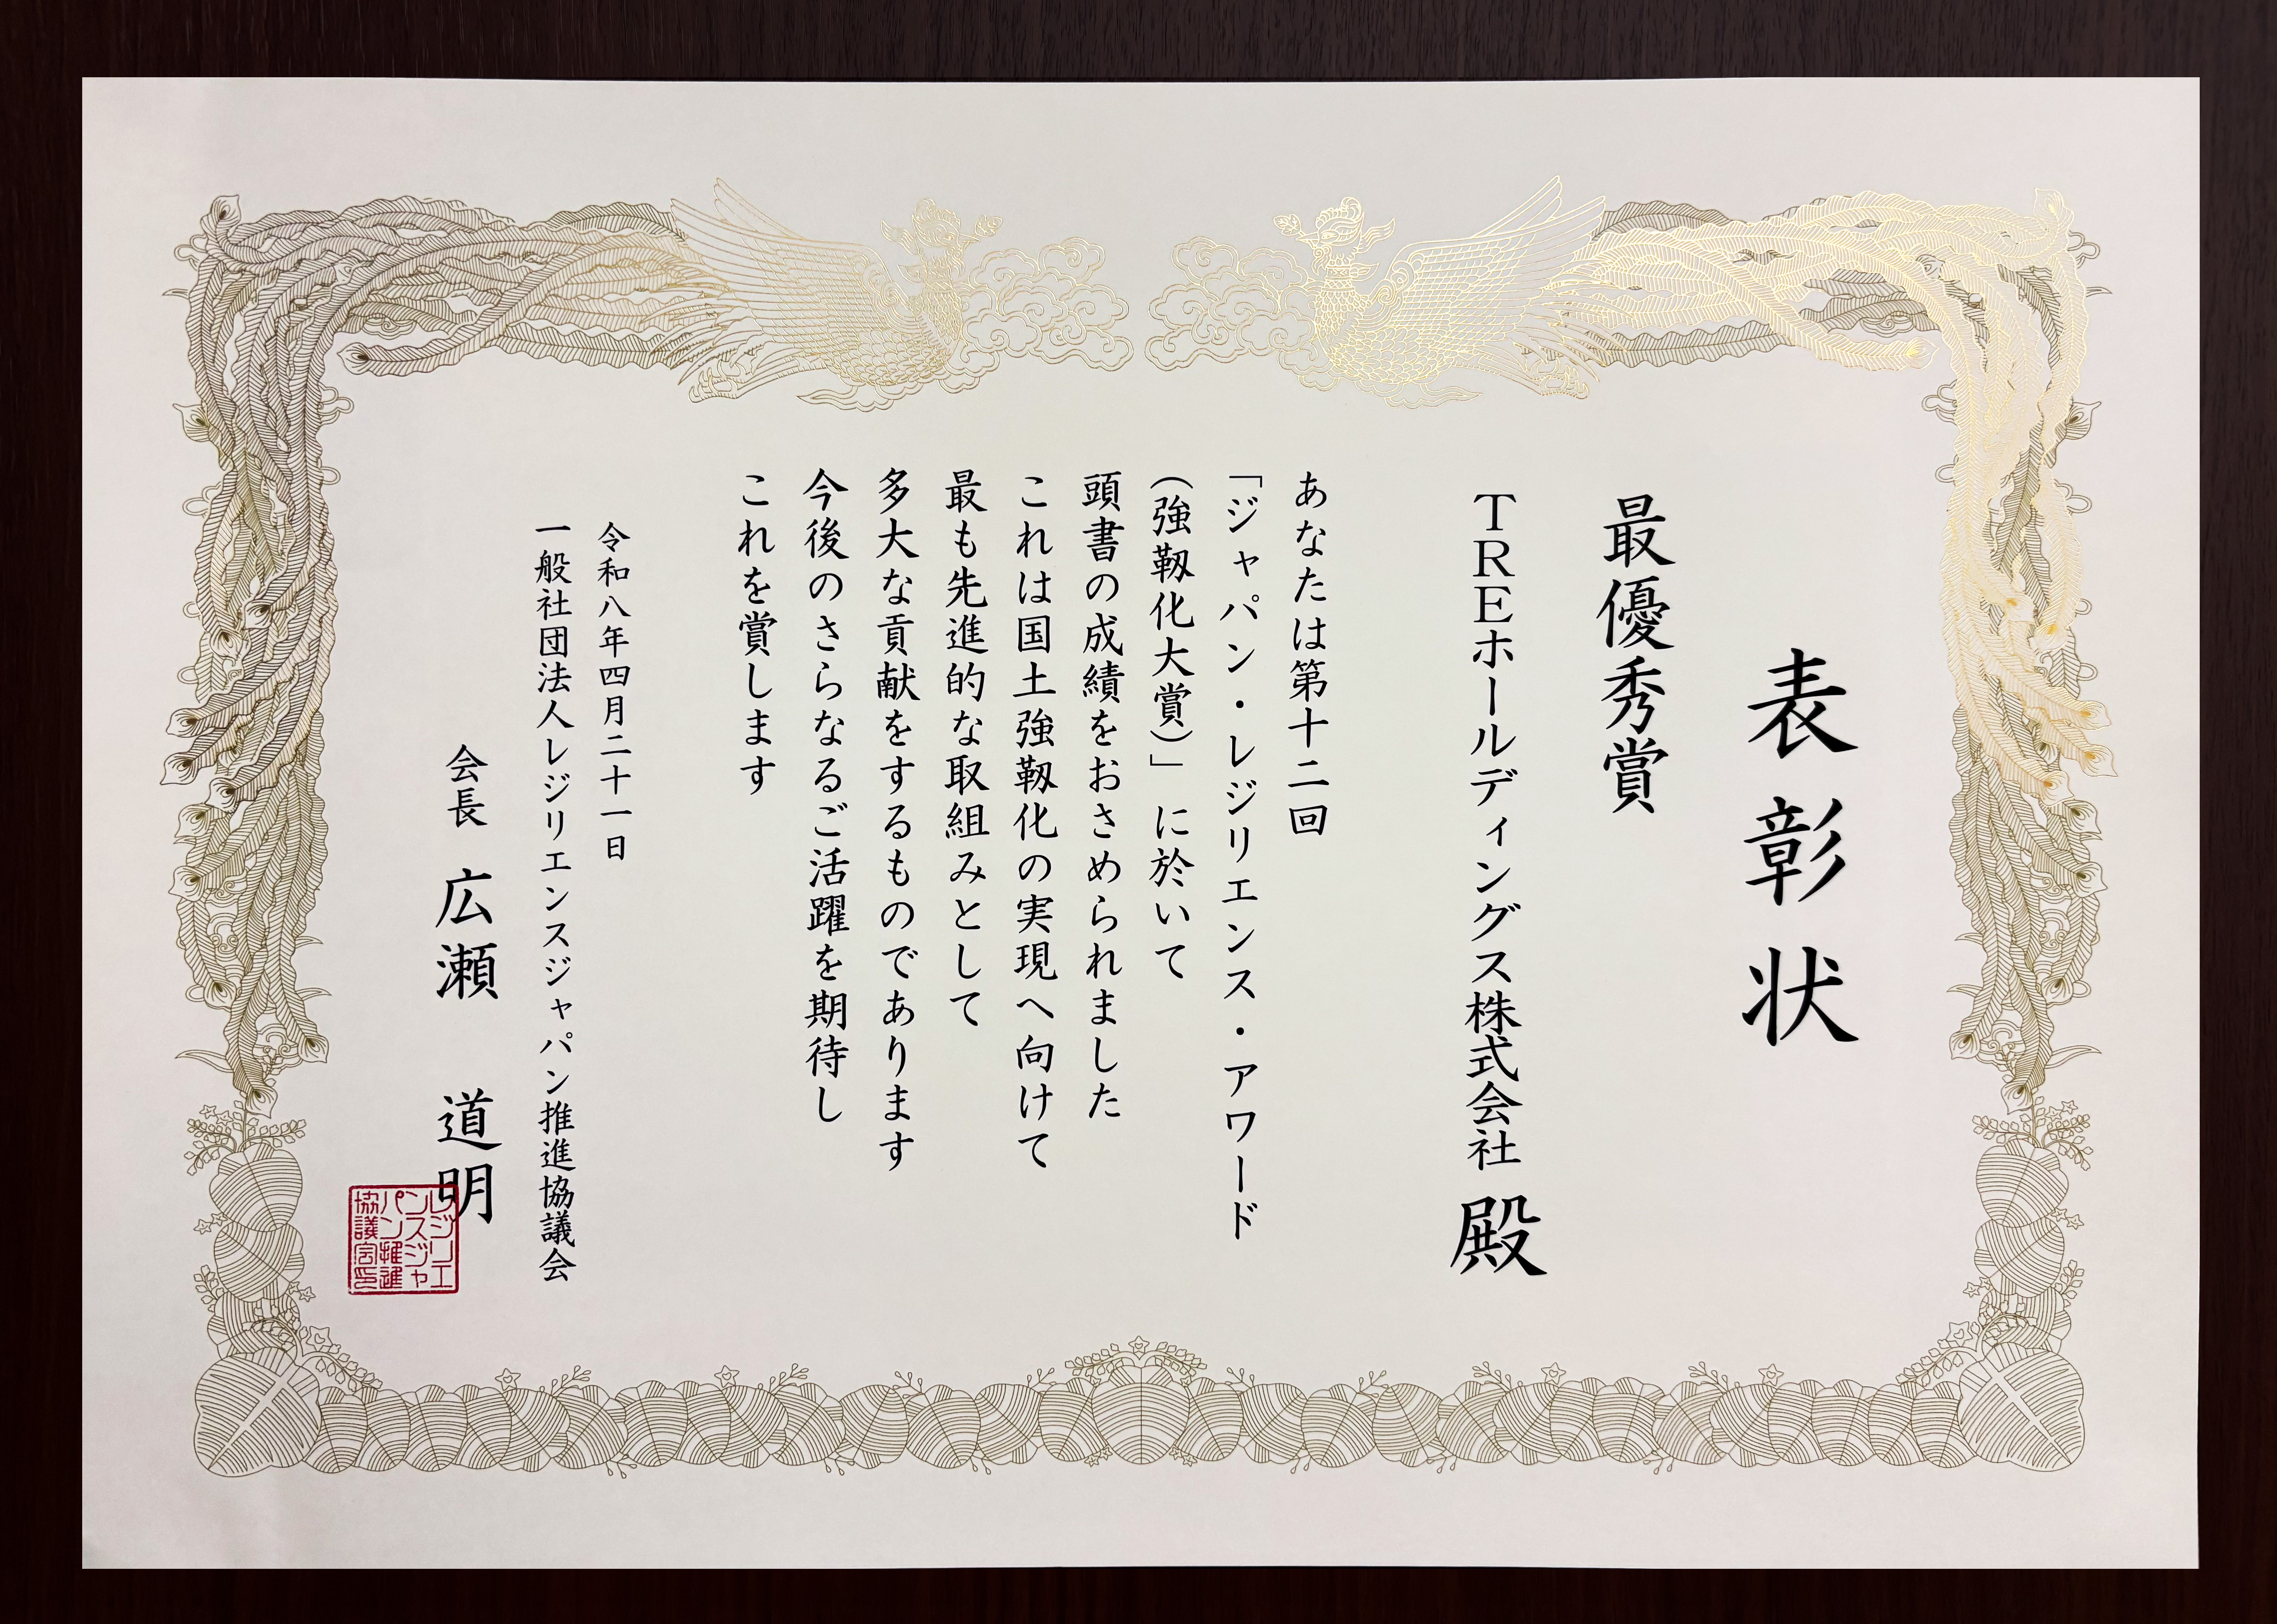 表彰状
最優秀賞
TREホールディングス株式会社 殿
あなたは第十二回
「ジャパン・レジリエンス・アワード
(強靱化大賞)」に於いて
頭書の成績をおさめられました
これは国土強靱化の実現へ向けて
最も先進的な取組みとして
多大な貢献をするものであります
今後のさらなるご活躍を期待し
これを賞します
令和八年四月二十一日
一般社団法人レジリエンスジャパン推進協議会
会長 広瀬 道明
レジリエ
ンスジャ
パン推進
協議会印